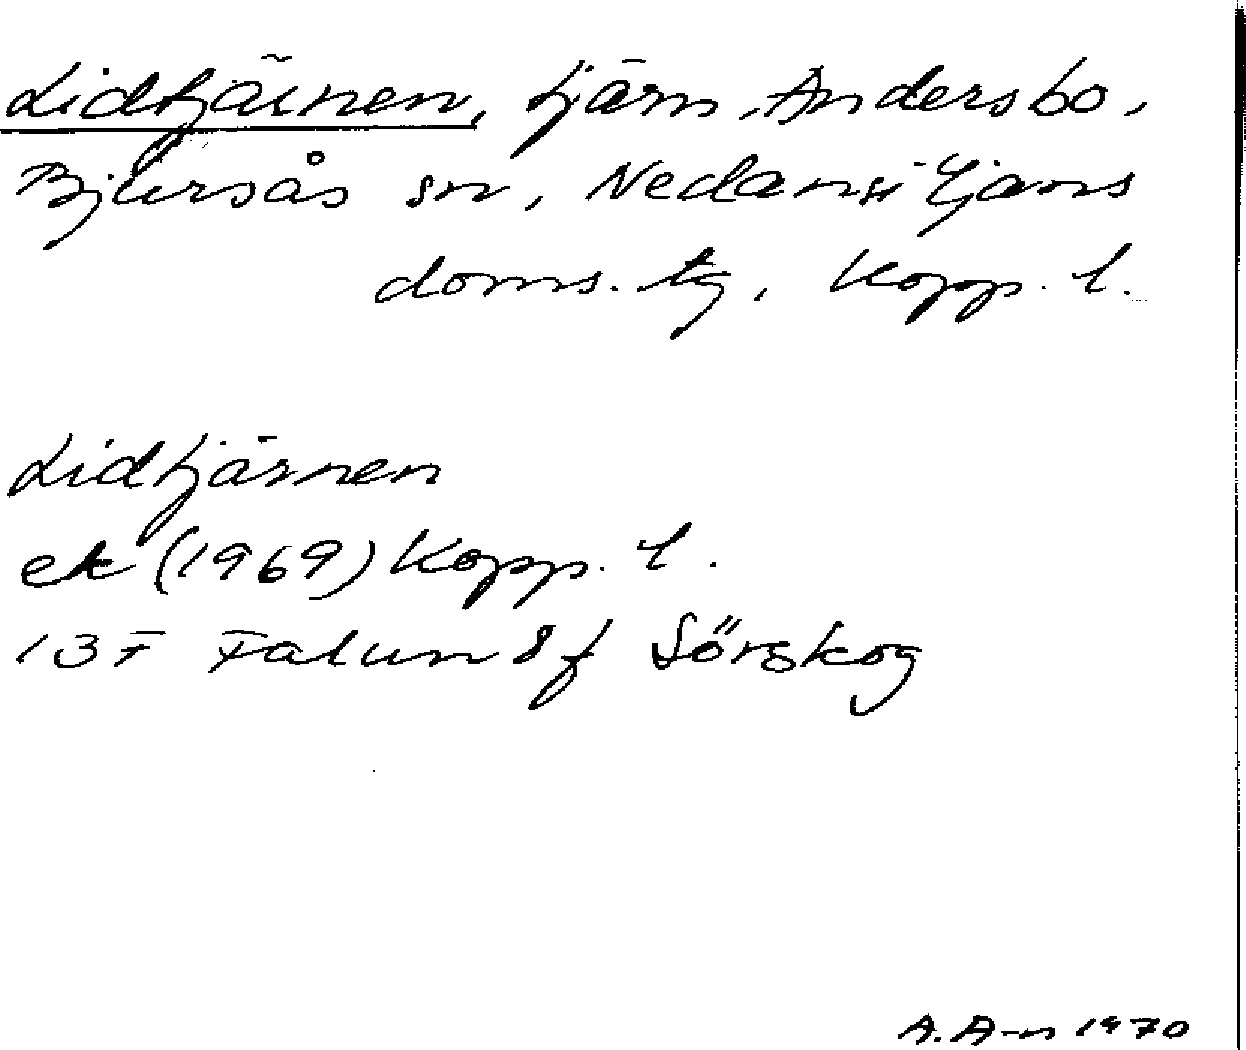 Lidtjärnen, tjärn, Andersbo,
Bjursås sn, Nedansiljans
doms. tg, Kopp. l.
Lidtjärnen
ek (1969) Kopp. l.
13F Falun 8f Sörskog
A. A-n 1970